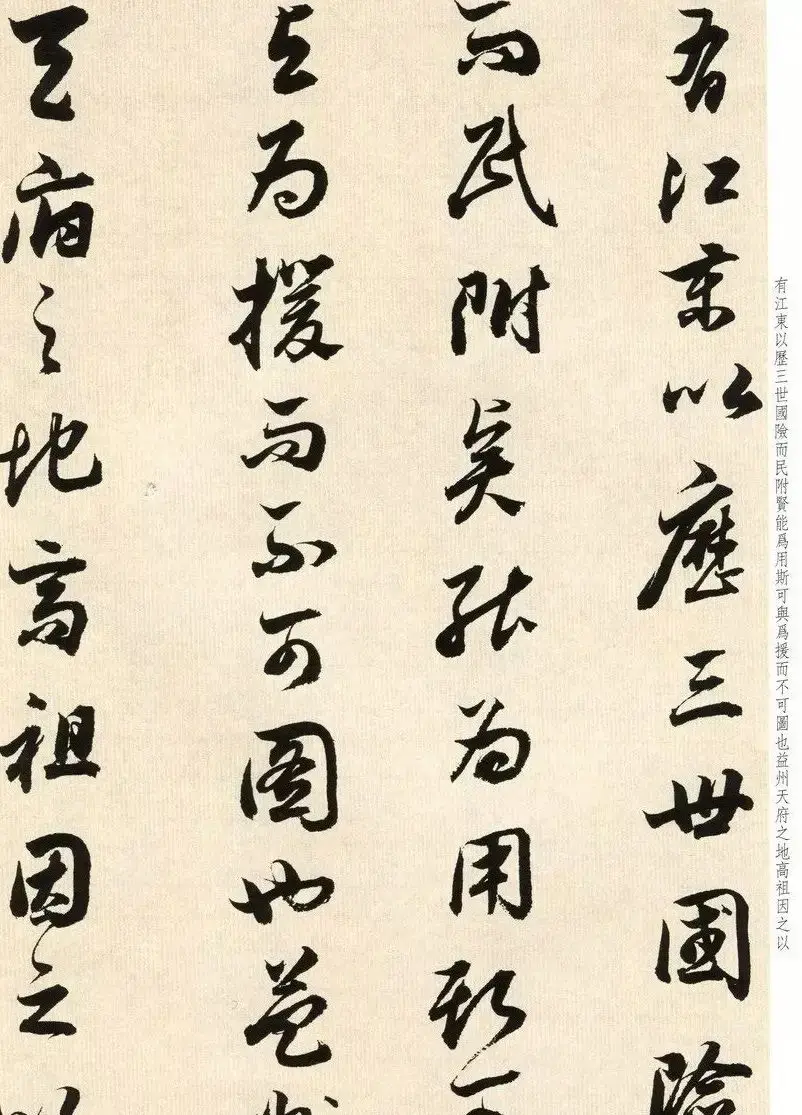 有江東以歷三世國險而民附賢能爲用斯可與爲援而不可圖也益州天府之地高祖因之以
有江東以歷三世國險
而民附賢能為用斯可
與為援而不可圖也益州
天府之地高祖因之以